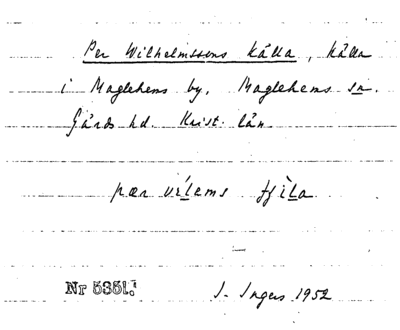 Per Wilhelmssons Källa, källa
i Maglehems by, Maglehems sn.
Gärds hd. Krist. län
pær vílems tjìla
Nr 5351.
I. Ingers 1952